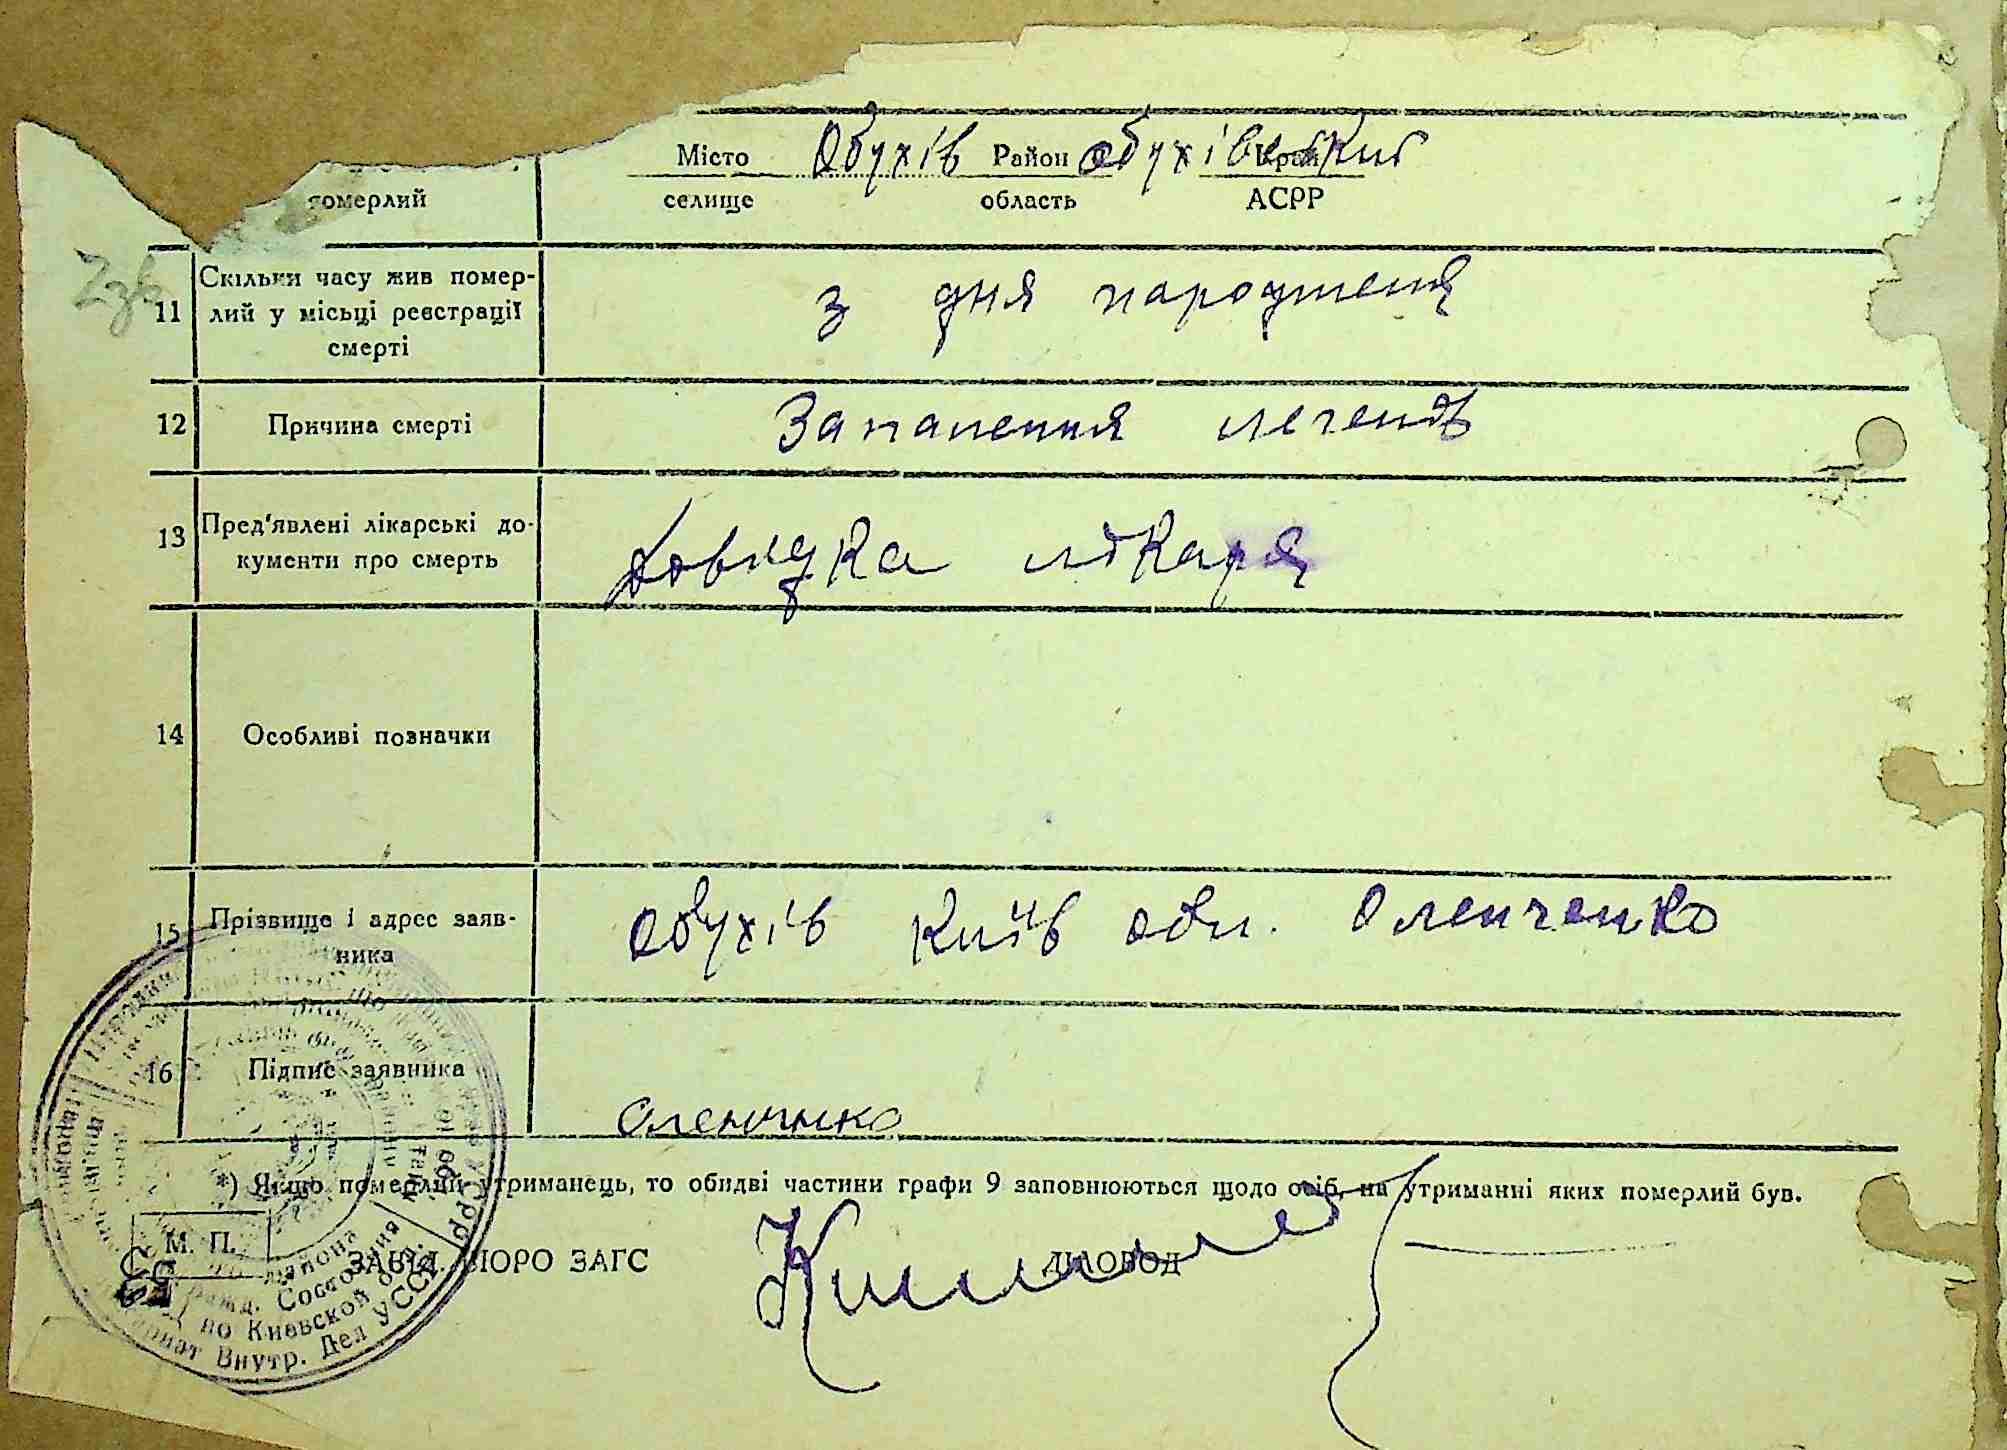 Місто Обухів Район обухівський Край
померлий селище область АСРР
11 Скільки часу жив помер-
лий у місьці реєстрації
смерті
з дня народженя
12 Причина смерті Запалення легенів
13 Пред'явлені лікарські до-
кументи про смерть
Довидка лікаря
14 Особливі позначки
15 Прізвище і адрес заяв-
ника
Обухів Київ обл. Оленченко
16 Підпис заявника
Оленчнко
*) Якщо померлий утриманець, то обидві частини графи 9 заповнюються щодо осіб, на утриманні яких померлий був.
М. П.
ЗАВІД. БЮРО ЗАГС ДІЛОВОД
района
Гражд. Состояния
по Киевской обл.
Внутр. Дел УССР